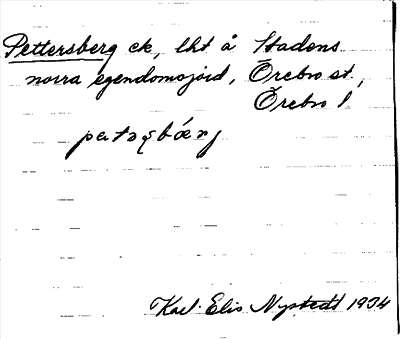 Pettersberg ck, lht å Stadens
norra egendomsjord, Örebro st.,
Örebro l.
pætəʂbærj
Karl-Elis Nystedt 1934